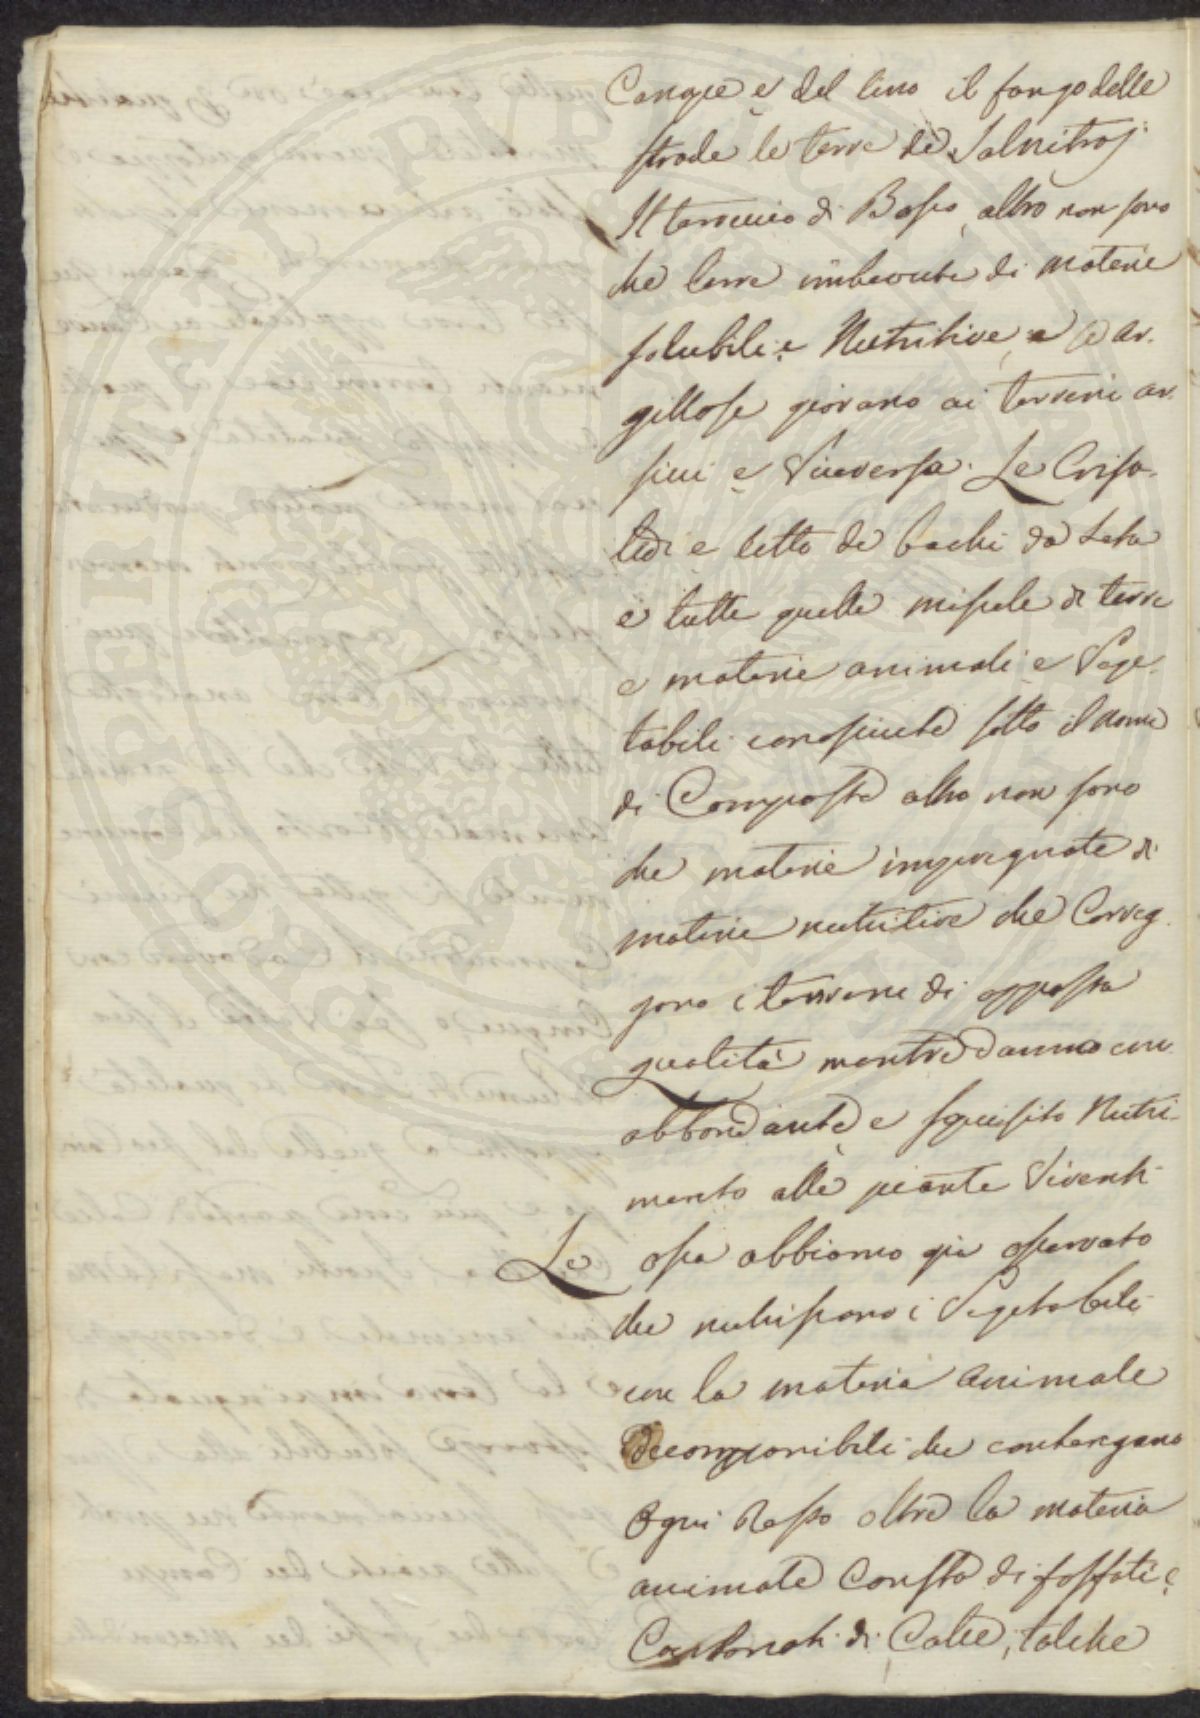 Canape e del lino il fango delle
strade le terre di Salnitro,
Il terriccio di Bosco, altro non sono
che terre imbevute di materie
solubili e Nutritive, e le ar-
gillose giovano ai terreni ar-
sicci e Viceversa. Le Crisa-
lidi e letto de bachi da Seta
e tutte quelle miscele di terre
e materie animali e Vege-
tabili conosciute sotto il nome
di Composte altro non sono
che materie impregnate di
materie nutritive che Correg-
gono i terreni di opposta
qualità mentre danno un
abbondante e squisito Nutri-
mento alle piante Viventi
Le ossa abbiamo già osservato
che nutriscono i Vegetabili
con la materia animale
decomponibili che contengono
Ogni Osso oltre la materia
animale Consta di fosfati e
Carbonati di Calce, talche